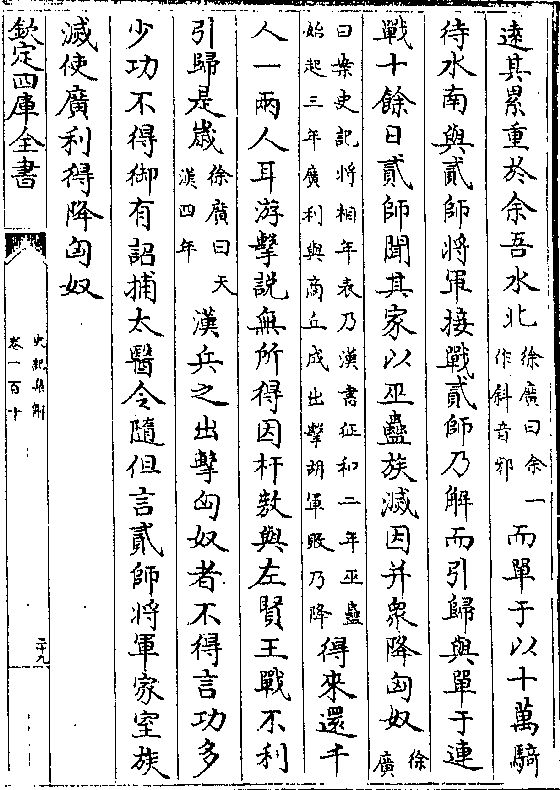 遠其累重於余吾水北徐廣曰余一作斜音邪而單于以十萬騎
待水南與貳師將軍接戰貳師乃解而引歸與單于連
戰十餘日貳師聞其家以巫蠱族滅因并衆降匈奴徐廣
曰案史記將相年表乃漢書征和二年巫蠱始起三年廣利與商丘成出擊胡軍敗乃降得來還千
人一兩人耳游擊說無所得因杅敖與左賢王戰不利
引歸是歲徐廣曰天漢四年漢兵之出擊匈奴者不得言功多
少功不得御有詔捕太醫令隨但言貳師將軍家室族
滅使廣利得降匈奴
欽定四庫全書
史記集解
卷一百十
二十九